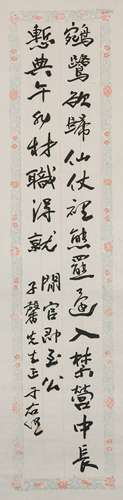 鵷鷺欲歸仙仗裡熊羆還入禁營中長
慙典午非材職得就
閒官即至公
子馨先生正于右任